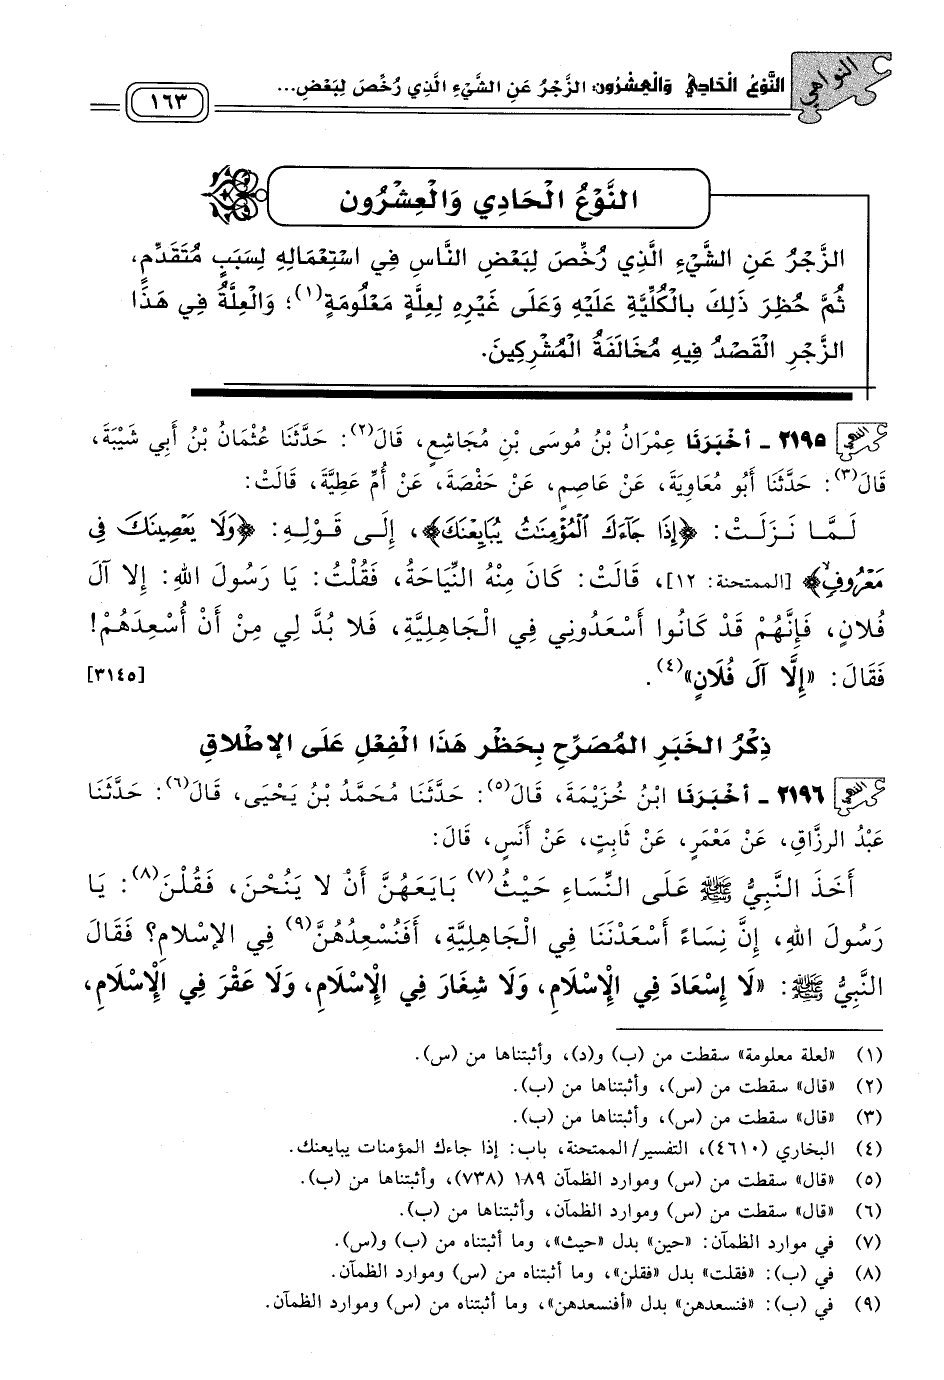 النواهي
النَّوْعُ الْحَادِي وَالْعِشْرُون: الزَّجْرُ عَنِ الشَّيْءِ الَّذِي رُخِّصَ لِبَعْضِ...
١٦٣
النَّوْعُ الْحَادِي وَالْعِشْرُون
الزَّجْرُ عَنِ الشَّيْءِ الَّذِي رُخِّصَ لِبَعْضِ النَّاسِ فِي اسْتِعْمَالِهِ لِسَبَبٍ مُتَقَدِّمٍ،
ثُمَّ حُظِرَ ذَلِكَ بِالْكُلِّيَّةِ عَلَيْهِ وَعَلَى غَيْرِهِ لِعِلَّةٍ مَعْلُومَةٍ(١)؛ وَالْعِلَّةُ فِي هَذَا
الزَّجْرِ الْقَصْدُ فِيهِ مُخَالَفَةُ الْمُشْرِكِينَ.
٢١٩٥ - أَخْبَرَنَا عِمْرَانُ بْنُ مُوسَى بْنِ مُجَاشِعٍ، قَالَ(٢): حَدَّثَنَا عُثْمَانُ بْنُ أَبِي شَيْبَةَ،
قَالَ(٣): حَدَّثَنَا أَبُو مُعَاوِيَةَ، عَنْ عَاصِمٍ، عَنْ حَفْصَةَ، عَنْ أُمِّ عَطِيَّةَ، قَالَتْ:
لَمَّا نَزَلَتْ: ﴿إِذَا جَاءَكَ الْمُؤْمِنَاتُ يُبَايِعْنَكَ﴾، إِلَى قَوْلِهِ: ﴿وَلَا يَعْصِينَكَ فِي
مَعْرُوفٍ﴾ [الممتحنة: ١٢]، قَالَتْ: كَانَ مِنْهُ النِّيَاحَةُ، فَقُلْتُ: يَا رَسُولَ اللهِ: إِلا آلَ
فُلانٍ، فَإِنَّهُمْ قَدْ كَانُوا أَسْعَدُونِي فِي الْجَاهِلِيَّةِ، فَلا بُدَّ لِي مِنْ أَنْ أُسْعِدَهُمْ!
فَقَالَ: «إِلَّا آلَ فُلَانٍ»(٤). [٣١٤٥]
ذِكْرُ الْخَبَرِ الْمُصَرِّحِ بِحَظْرِ هَذَا الْفِعْلِ عَلَى الإِطْلَاقِ
٢١٩٦ - أَخْبَرَنَا ابْنُ خُزَيْمَةَ، قَالَ(٥): حَدَّثَنَا مُحَمَّدُ بْنُ يَحْيَى، قَالَ(٦): حَدَّثَنَا
عَبْدُ الرزَّاقِ، عَنْ مَعْمَرٍ، عَنْ ثَابِتٍ، عَنْ أَنَسٍ، قَالَ:
أَخَذَ النَّبِيُّ ﷺ عَلَى النِّسَاءِ حَيْثُ(٧) بَايَعَهُنَّ أَنْ لا يَنُحْنَ، فَقُلْنَ(٨): يَا
رَسُولَ اللهِ، إِنَّ نِسَاءً أَسْعَدْنَنَا فِي الْجَاهِلِيَّةِ، أَفَنُسْعِدُهُنَّ(٩) فِي الإِسْلامِ؟ فَقَالَ
النَّبِيُّ ﷺ: «لَا إِسْعَادَ فِي الْإِسْلَامِ، وَلَا شِغَارَ فِي الْإِسْلَامِ، وَلَا عَقْرَ فِي الْإِسْلَامِ،
(١) «لعلة معلومة» سقطت من (ب) و(د)، وأثبتناها من (س).
(٢) «قال» سقطت من (س)، وأثبتناها من (ب).
(٣) «قال» سقطت من (س)، وأثبتناها من (ب).
(٤) البخاري (٤٦١٠)، التفسير/الممتحنة، باب: إذا جاءك المؤمنات يبايعنك.
(٥) «قال» سقطت من (س) وموارد الظمآن ١٨٩ (٧٣٨)، وأثبتناها من (ب).
(٦) «قال» سقطت من (س) وموارد الظمآن، وأثبتناها من (ب).
(٧) في موارد الظمآن: «حين» بدل «حيث»، وما أثبتناه من (ب) و(س).
(٨) في (ب): «فقلت» بدل «فقلن»، وما أثبتناه من (س) وموارد الظمآن.
(٩) في (ب): «فنسعدهن» بدل «أفنسعدهن»، وما أثبتناه من (س) وموارد الظمآن.